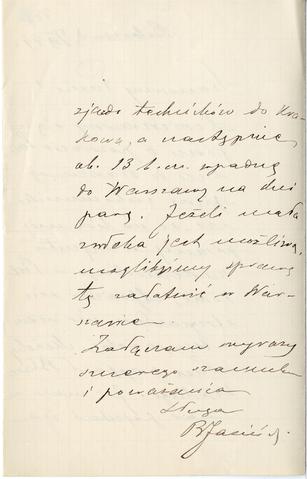 zjazdu techników do Kra-
kowa, a następnie
ok. 13 b. m. wpadnę
do Warszawy na dni
parę. Jeżeli mała
zwłoka jest możliwą,
moglibyśmy sprawę
tę załatwić w War-
szawie
Załączam wyrazy
szczerego szacunku
i poważania
sługa